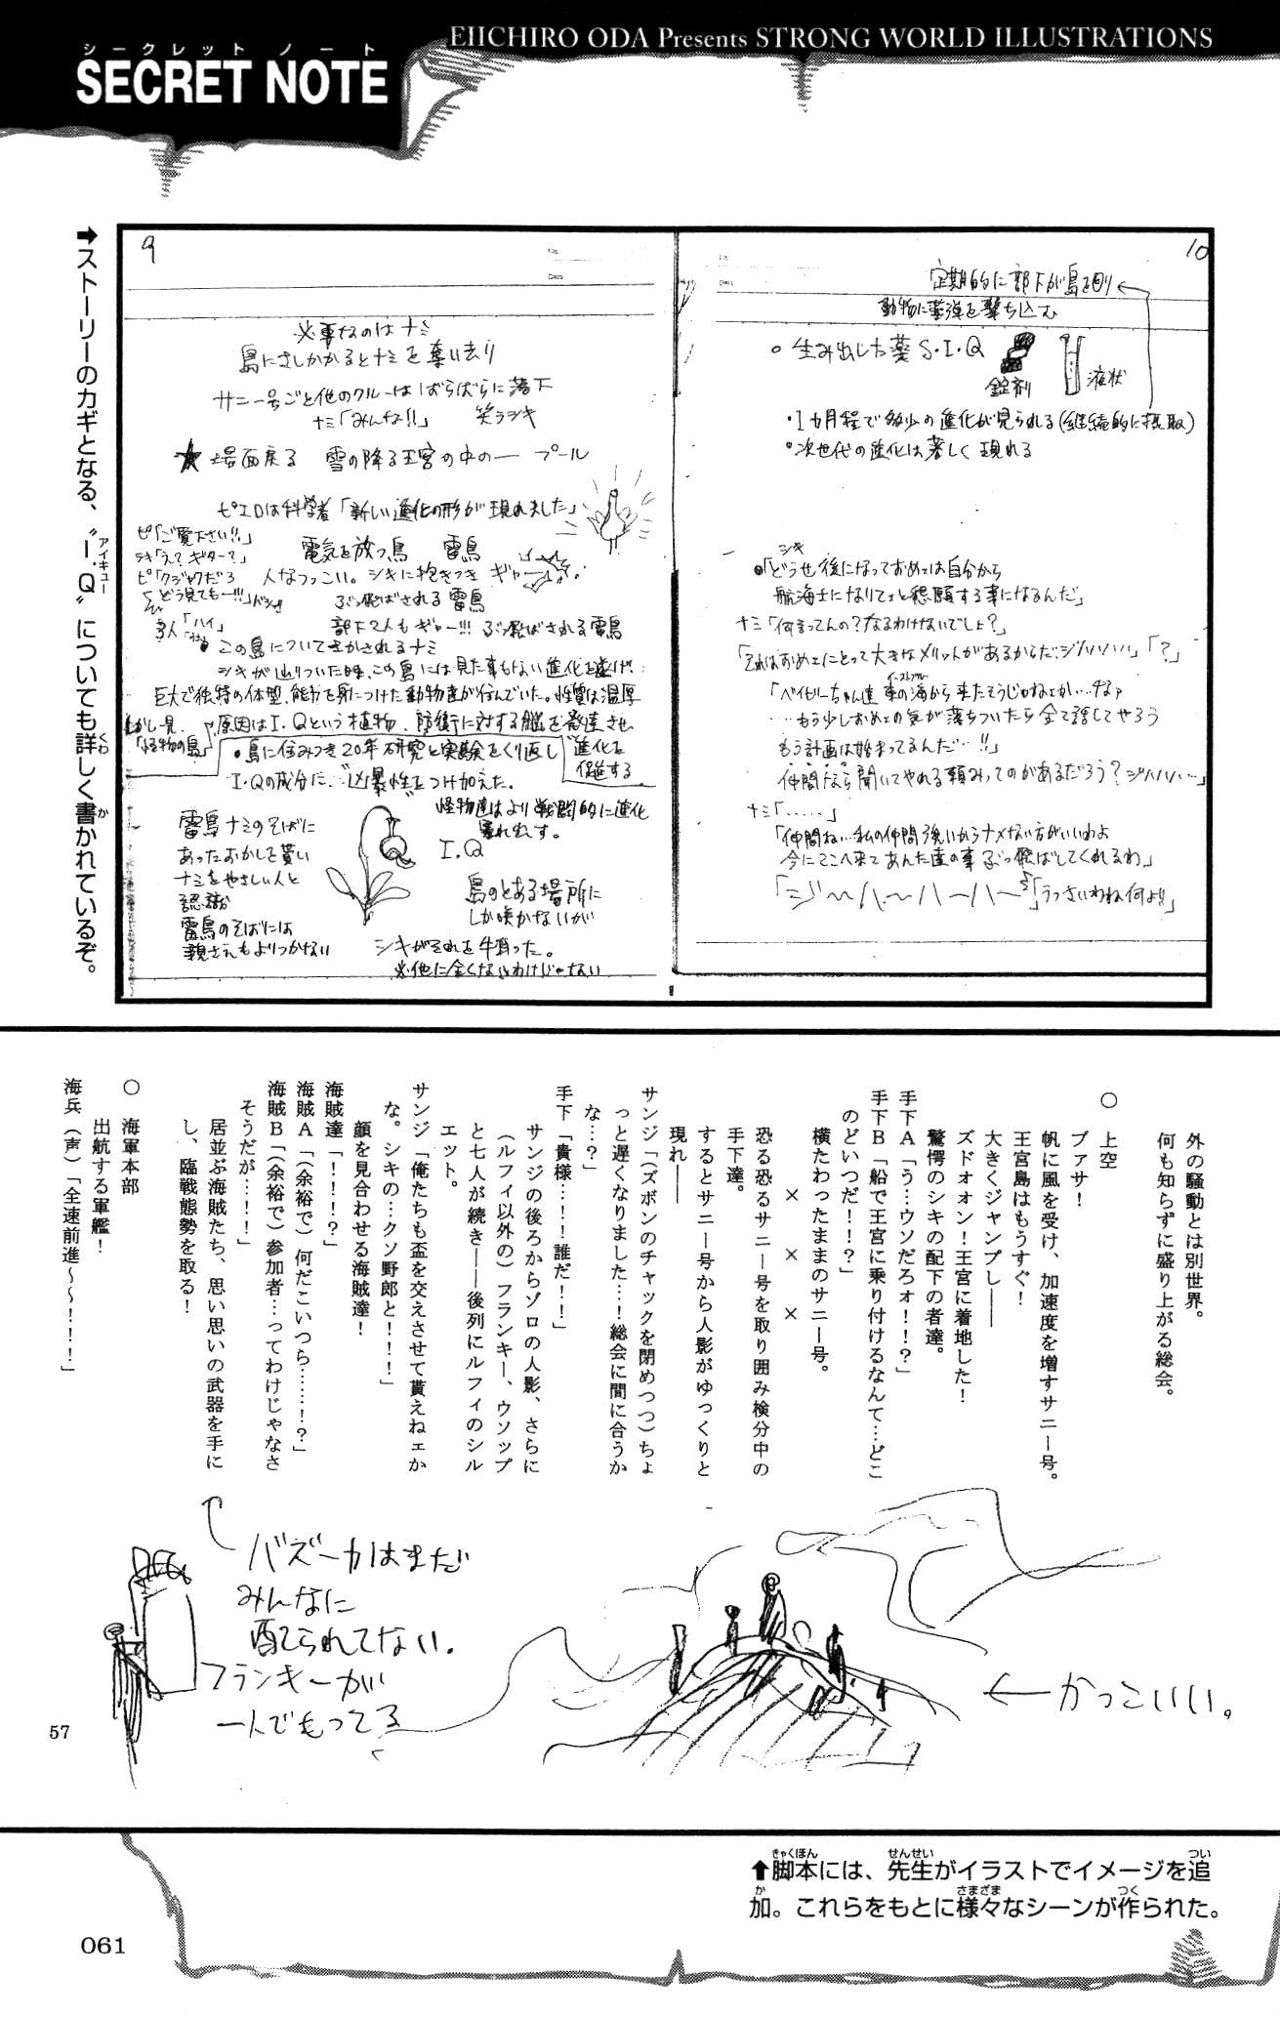 シークレット ノート
SECRET NOTE
EIICHIRO ODA Presents STRONG WORLD ILLUSTRATIONS
➡ストーリーのカギとなる、〝I.Q〟についても詳しく書かれているぞ。
9
島にさしかかるとナミを奪い去り
サニー号ごと他のクルーはばらばらに落下
ナミ「みんな!!」
★場面戻る 雪の降る王宮の中の— プール
ピエロは科学者「新しい進化の形が現れました」
ピ「ご覧下さい!!」
電気を放つ鳥 雷鳥
シキ「え? ギター?」
ピ「クジャクだろ
どう見てもー!!」
人なつっこい。シキに抱きつき ギャー
ぶっ飛ばされる雷鳥
部下2人もギャー!!! ぶっ飛ばされる雷鳥
この島についてきかされるナミ
シキが辿りついた時、この島には見た事もない進化を遂げ
巨大で独特の体型、能力を身につけた動物達が住んでいた。性質は温厚
しかし一見、「怪物の島」
原因はI.Qという植物、防衛に対する脳を発達させ
進化を促進する
•島に住みつき20年 研究と実験をくり返し
I.Qの成分に…〝凶暴性〟をつけ加えた。
怪物達はより戦闘的に進化
暴れ出す。
I.Q
雷鳥 ナミのそばに
あったおかしを貰い
ナミをやさしい人と
認識
雷鳥のそばには
親さえもよりつかない
島のとある場所に
しか咲かないが
シキがそれを牛耳った。
※他に全くないわけじゃない
10
定期的に部下が島を回り
動物に薬弾を撃ち込む
•生み出した薬 S・I・Q
錠剤
液状
•1カ月程で多少の進化が見られる(継続的に摂取)
•次世代の進化は著しく現れる
シキ
•「どうせ後になっておめェは自分から
航海士になりてェと懇願する事になるんだ」
ナミ「何言ってんの? なるわけないでしょ?」
「それはおめェにとって大きなメリットがあるからだ…ジハハハハ」「?」
「ベイビーちゃん達 東の海から来たそうじゃねェか…なァ
…もう少しおめェの気が落ちついたら全て話してやろう
もう計画は始まってるんだ…!!」
仲間なら聞いてやれる頼みってのがあるだろう? ジハハハ〜」
ナミ「……」
「仲間ね…私の仲間強いからナメない方がいいわよ
今にここへ来てあんた達の事ぶっ飛ばしてくれるわ」
「ジ〜ハ〜ハーハ〜」「うっさいわね何よ!!」
外の騒動とは別世界。
何も知らずに盛り上がる総会。
○ 上空
ブァサ!
帆に風を受け、加速度を増すサニー号。
王宮島はもうすぐ!
大きくジャンプし——
ズドオオン!王宮に着地した!
驚愕のシキの配下の者達。
手下A「う…ウソだろォ!!?」
手下B「船で王宮に乗り付けるなんて…どこ
のどいつだ!!?」
横たわったままのサニー号。
× × ×
恐る恐るサニー号を取り囲み検分中の
手下達。
するとサニー号から人影がゆっくりと
現れ——
サンジ「(ズボンのチャックを閉めつつ)ちょ
っと遅くなりました…!総会に間に合うか
な…?」
手下「貴様…!!誰だ!!」
サンジの後ろからゾロの人影、さらに
(ルフィ以外の)フランキー、ウソップ
と七人が続き——後列にルフィのシル
エット。
サンジ「俺たちも盃を交えさせて貰えねェか
な。シキの…クソ野郎と!!!」
顔を見合わせる海賊達!
海賊達「!!!?」
海賊A「(余裕で)何だこいつら……!?」
海賊B「(余裕で)参加者…ってわけじゃなさ
そうだが…!!」
居並ぶ海賊たち、思い思いの武器を手に
し、臨戦態勢を取る!
○ 海軍本部
出航する軍艦!
海兵(声)「全速前進〜〜!!!」
バズーカはまだ
みんなに
配られてない。
フランキーが
一人でもってる
←かっこいい。
57
⬆脚本には、先生がイラストでイメージを追
加。これらをもとに様々なシーンが作られた。
061